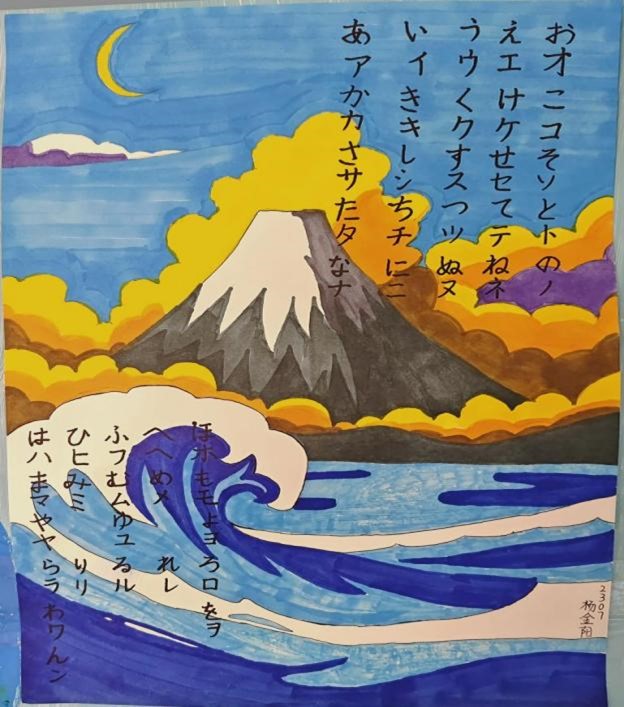 あア かカ さサ たタ なナ
いイ きキ しシ ちチ にニ
うウ くク すス つツ ぬヌ
えエ けケ せセ てテ ねネ
おオ こコ そソ とト のノ
はハ まマ やヤ らラ わワ んン
ひヒ みミ りリ
ふフ むム ゆユ るル
へヘ めメ れレ
ほホ もモ よヨ ろロ をヲ
2307
杨金阳